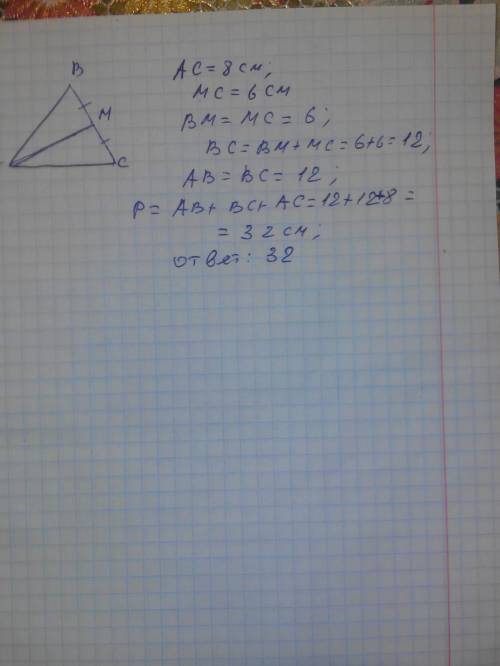 B
M
C
AC = 8 см;
MC = 6 см
BM = MC = 6;
BC = BM + MC = 6+6 = 12;
AB = BC = 12;
P = AB + BC + AC = 12 + 12 + 8 =
= 32 см;
ответ: 32